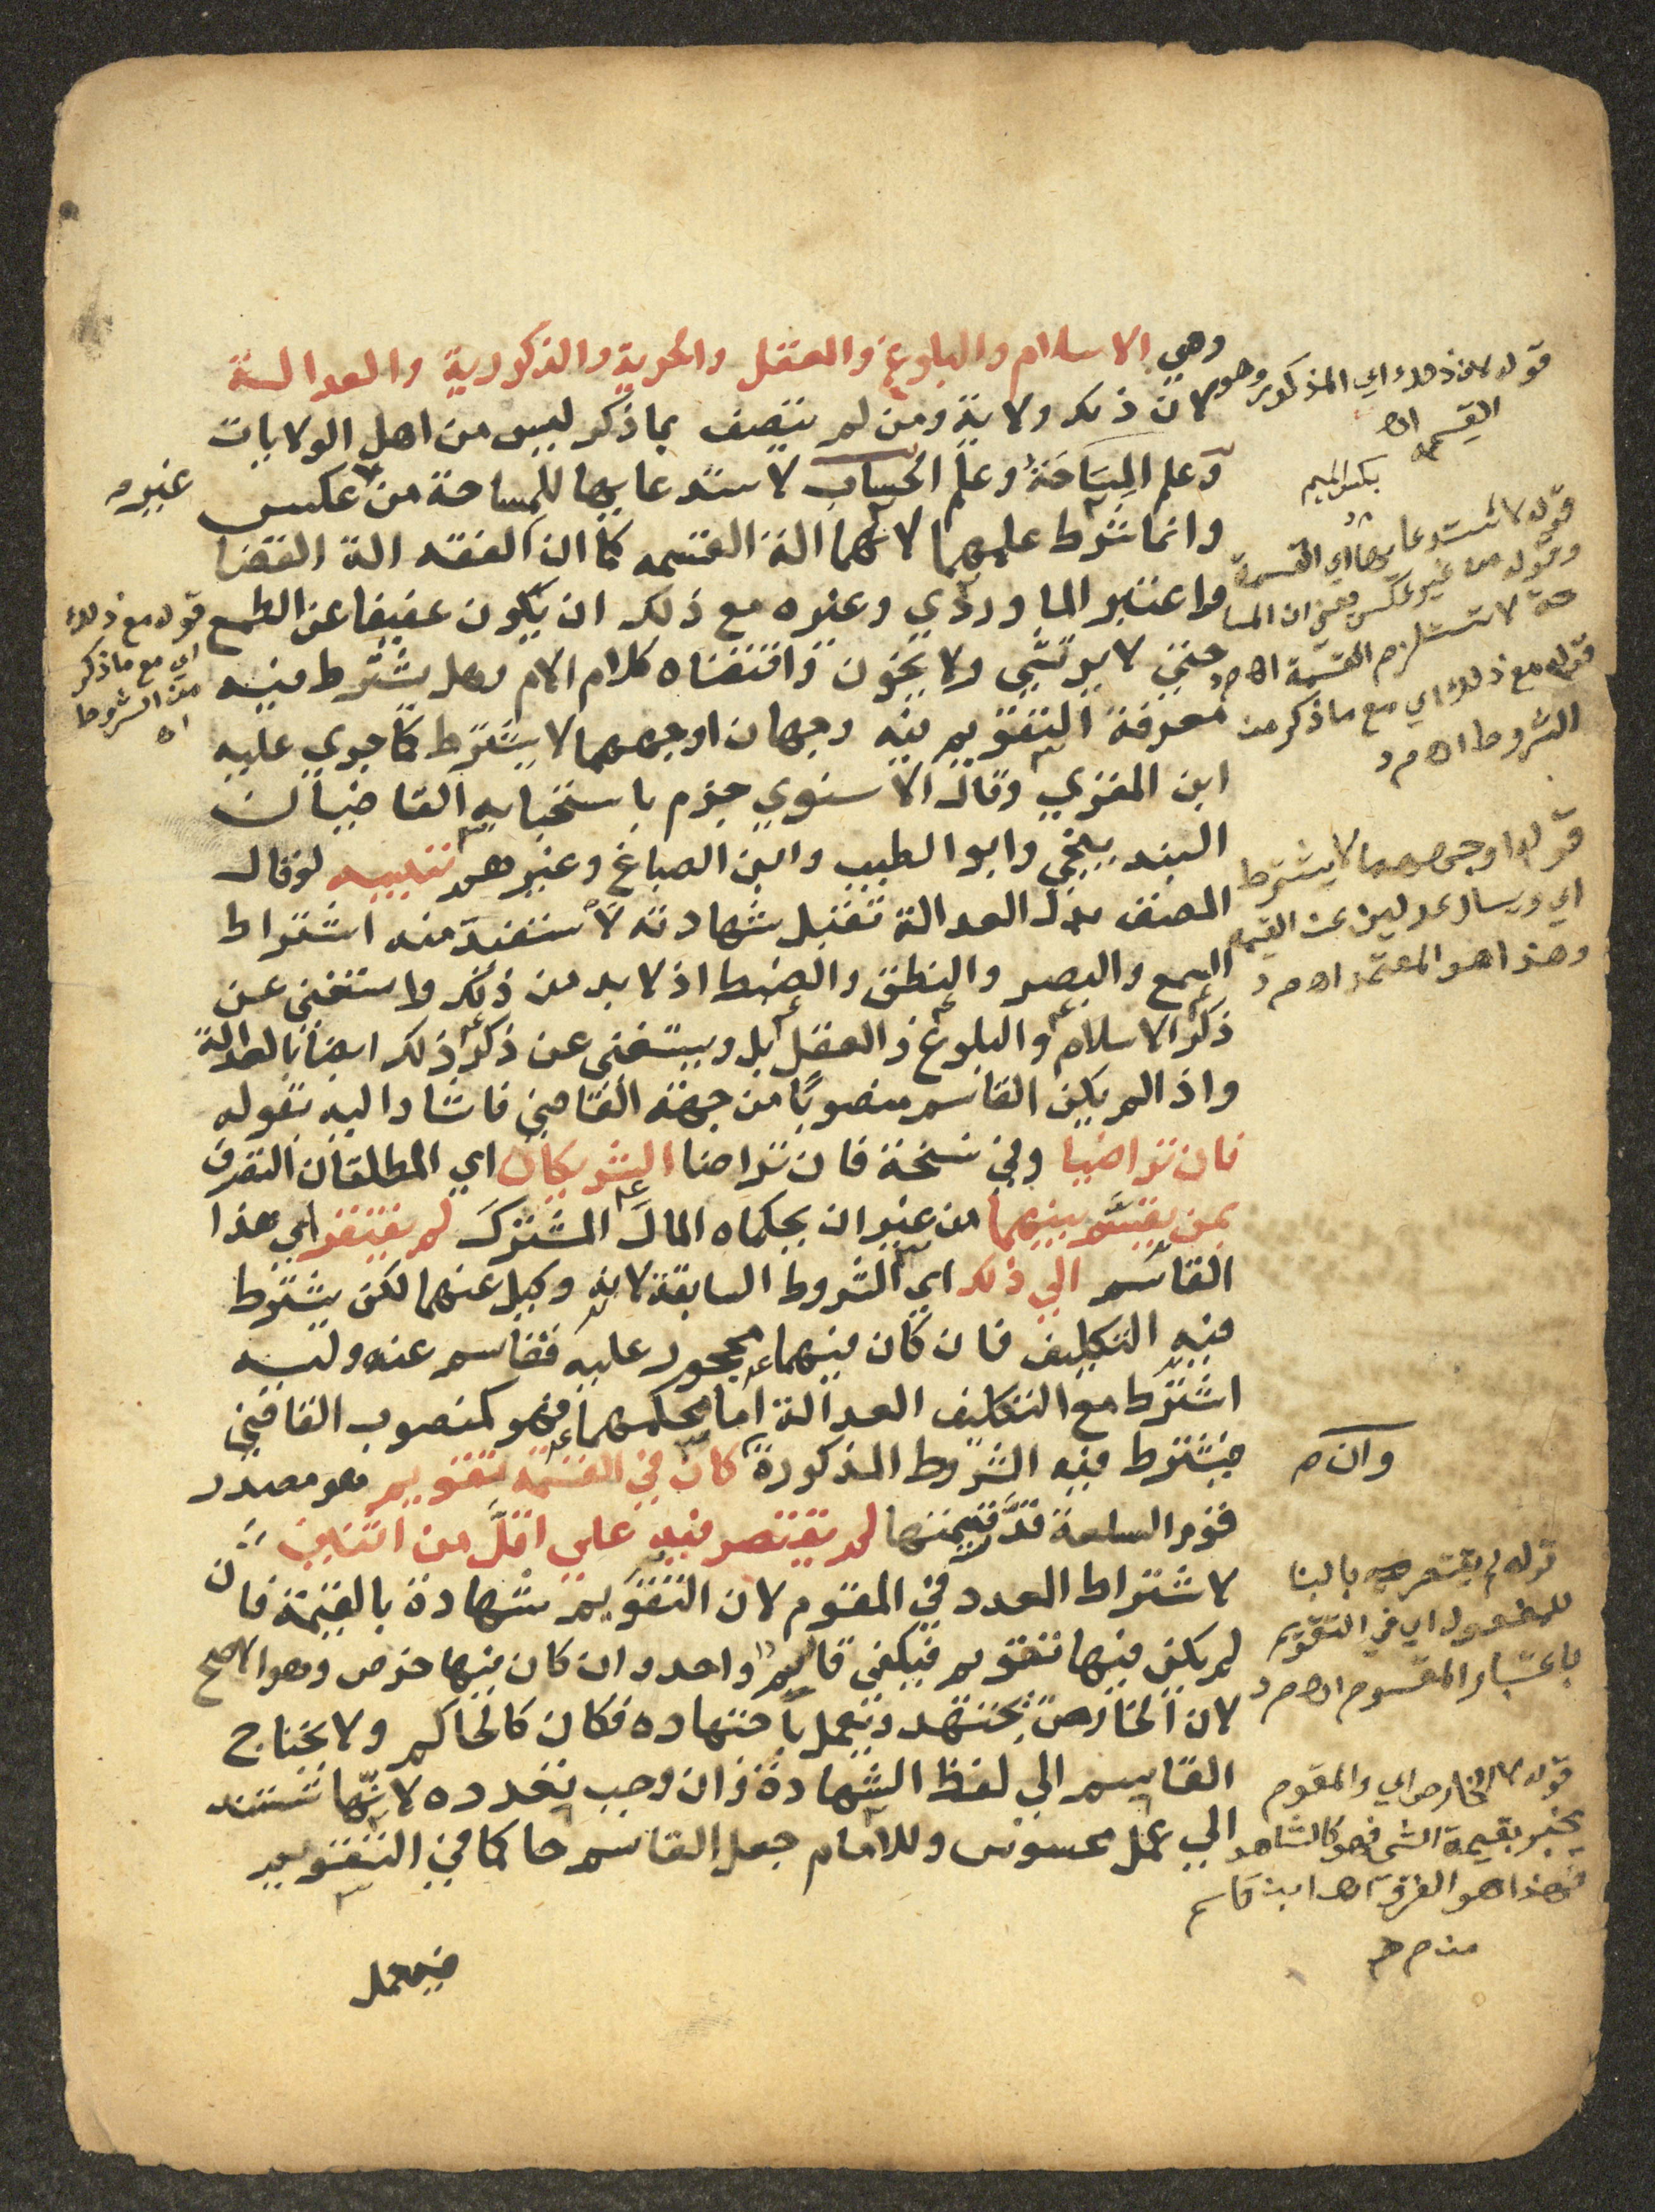 وهي الاسلام والبلوغ والعقل والحرية والذكورية والعدالة
لان ذلك ولاية ومن لم يتصف بما ذكر ليس من اهل الولايات
وعلم المِسَاحَة وعلم الحساب لاستدعايها للمساحة من عكس
غير
وانما شرط علمهما لانهما الة القسمه كما ان الفقه الة القضا
واعتبر الماوردي وغيره مع ذلك ان يكون عفيفا عن الطمع
حتى لا يرتشي ولا يخون واقتضاه كلام الام وهل يشترط فيه
معرفة التقويم فيه وجهان اوجههما لا يشترط كما جرى عليه
ابن المقري وقال الاسنوي جزم باستحبابه القاضيان
البندنيجي وابو الطيب وابن الصباغ وغيرهم تنبيه لو قال
المصنف بدل العدالة تقبل شهادته لاستفيد منه اشتراط
السمع والبصر والنطق والضبط اذ لا بد من ذلك واستغنى عن
ذكر الاسلام والبلوغ والعقل بل ويستغنى عن ذكر ذلك ايضا بالعدالة
واذا لم يكن القاسم منصوبًا من جهة القاضي فاشار اليه بقوله
فان تراضيا وفي نسخة فان تراضا الشريكان اي المطلقان التصرف
بمن يقسم بينهما من غير ان يحكماه المال المشترك لم يفتقر اي هذا
القاسم الي ذلك اي الشروط السابقة لانه وكيل عنهما لكن يشترط
فيه التكليف فان كان فيهما محجور عليه فقاسم عنه وليه
اشترط مع التكليف العدالة اما محكمهما فهو كمنصوب القاضي
فيشترط فيه الشروط المذكورة كان في القسمة تقويم هو مصدر
وان
قوم السلعة قدَّر قيمتها لم يقتصر فيه على اقلَّ من اثنين
لاشتراط العدد في المقوم لان التقويم شهادة بالقيمة فان
لم يكن فيها تقويم فيكفي قاسم واحد وان كان فيها خرص وهو الاصح
لان الخارص يجتهد ويعمل باجتهاده فكان كالحاكم ولا يحتاج
القاسم الي لفظ الشهادة وان وجب تعدده لانها تستند
الي عمل محسوس وللامام جعل القاسم حاكما في التقويم
فيعمل
قوله لان ذلك اي المذكور وهو
القسمة اه
بكسر الميم
قوله لاستدعايها اي القسمة
وقوله من غير عكس يعني ان المسا
حة لا تستلزم القسمة اه م د
قوله مع ذلك اي مع ما ذكر من
الشروط اه م د
قوله مع ذلك
اي مع ما ذكر
من الشروط
اه
قوله اوجههما لا يشترط
اي ويسال عدلين عن القيمة
وهذا هو المعتمد اه م د
قوله لم يقتصر بالبنا
للمفعول اي في التقويم
باعتبار المقسوم اه م د
قوله لان الخارص اي والمقوم
يخبر بقيمة الشي فهو كالشاهد
فهذا هو الفرق اه ابن قاسم